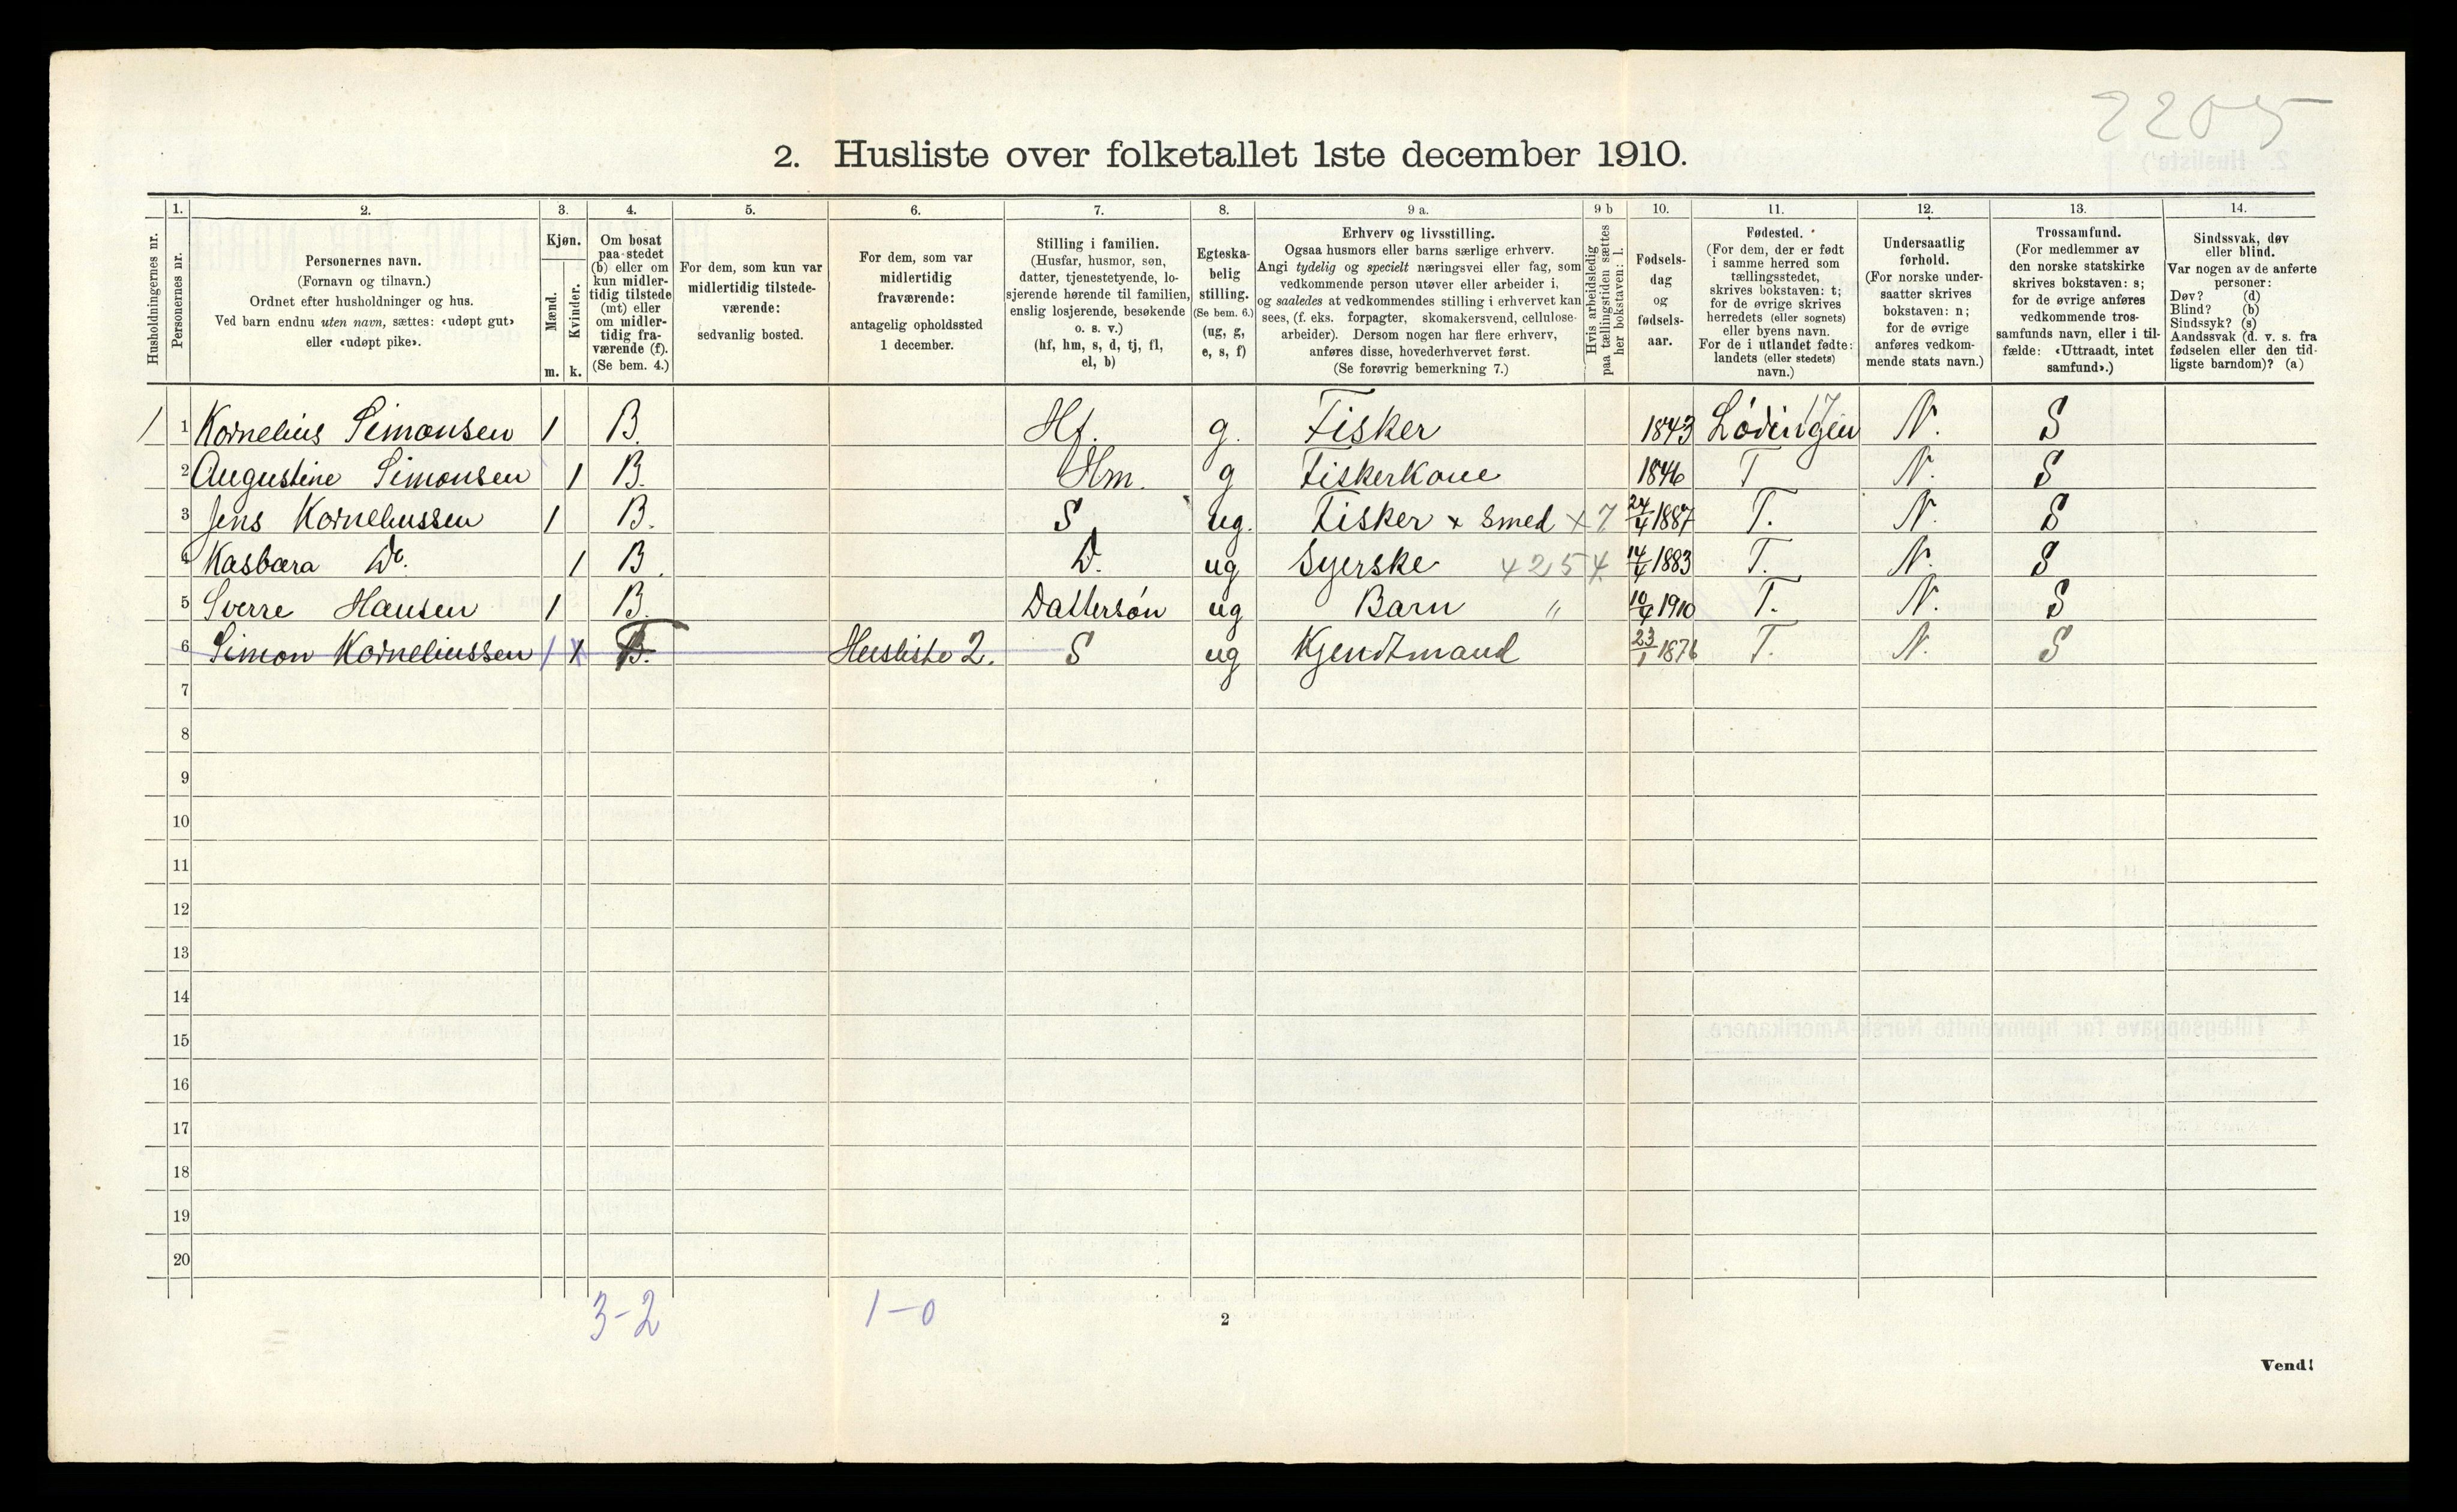 2205
2. Husliste over folketallet 1ste december 1910.
Husholdningernes nr.
1. Personernes nr.
2. Personernes navn.
(Fornavn og tilnavn.)
Ordnet efter husholdninger og hus.
Ved barn endnu uten navn, sættes: «udøpt gut»
eller «udøpt pike».
3. Kjøn.
Mænd. m.
Kvinder. k.
4. Om bosat
paa stedet
(b) eller om
kun midler-
tidig tilstede
(mt) eller
om midler-
tidig fra-
værende (f).
(Se bem. 4.)
5. For dem, som kun var
midlertidig tilstede-
værende:
sedvanlig bosted.
6. For dem, som var
midlertidig
fraværende:
antagelig opholdssted
1 december.
7. Stilling i familien.
(Husfar, husmor, søn,
datter, tjenestetyende, lo-
sjerende hørende til familien,
enslig losjerende, besøkende
o. s. v.)
(hf, hm, s, d, tj, fl,
el, b)
8. Egteska-
belig
stilling.
(Se bem. 6.)
(ug, g,
e, s, f)
9 a. Erhverv og livsstilling.
Ogsaa husmors eller barns særlige erhverv.
Angi tydelig og specielt næringsvei eller fag, som
vedkommende person utøver eller arbeider i,
og saaledes at vedkommendes stilling i erhvervet kan
sees, (f. eks. forpagter, skomakersvend, cellulose-
arbeider). Dersom nogen har flere erhverv,
anføres disse, hovederhvervet først.
(Se forøvrig bemerkning 7.)
9 b Hvis arbeidsledig
paa tællingstiden sættes
her bokstaven: l.
10. Fødsels-
dag
og
fødsels-
aar.
11. Fødested.
(For dem, der er født
i samme herred som
tællingsstedet,
skrives bokstaven: t;
for de øvrige skrives
herredets (eller sognets)
eller byens navn.
For de i utlandet fødte:
landets (eller stedets)
navn.)
12. Undersaatlig
forhold.
(For norske under-
saatter skrives
bokstaven: n;
for de øvrige
anføres vedkom-
mende stats navn.)
13. Trossamfund.
(For medlemmer av
den norske statskirke
skrives bokstaven: s;
for de øvrige anføres
vedkommende tros-
samfunds navn, eller i til-
fælde: «Uttraadt, intet
samfund».)
14. Sindssvak, døv
eller blind.
Var nogen av de anførte
personer:
Døv? (d)
Blind? (b)
Sindssyk? (s)
Aandssvak (d. v. s. fra
fødselen eller den tid-
ligste barndom)? (a)
1 1 Kornelius Simonsen 1 B. Hf. g. Fisker 1843 Lødingen N. S
2 Augustine Simonsen 1 B. Hm. g Fiskerkone 1846 T N. S
3 Jens Korneliussen 1 B. S ug. Fisker x Smed x 7 24/4 1887 T. N. S
4 Kasbara Do. 1 B. D. ug Syerske 4254 14/4 1883 T. N. S
5 Sverre Hansen 1 B. Dattersøn ug Barn " 10/4 1910 T. N. S
6 Simon Korneliussen 1 Husliste 2. S ug Kjendtmand 23/1 1876 T. N. S
7
8
9
10
11
12
13
14
15
16
17
18
19
20
3-2 1-0
2
Vend!